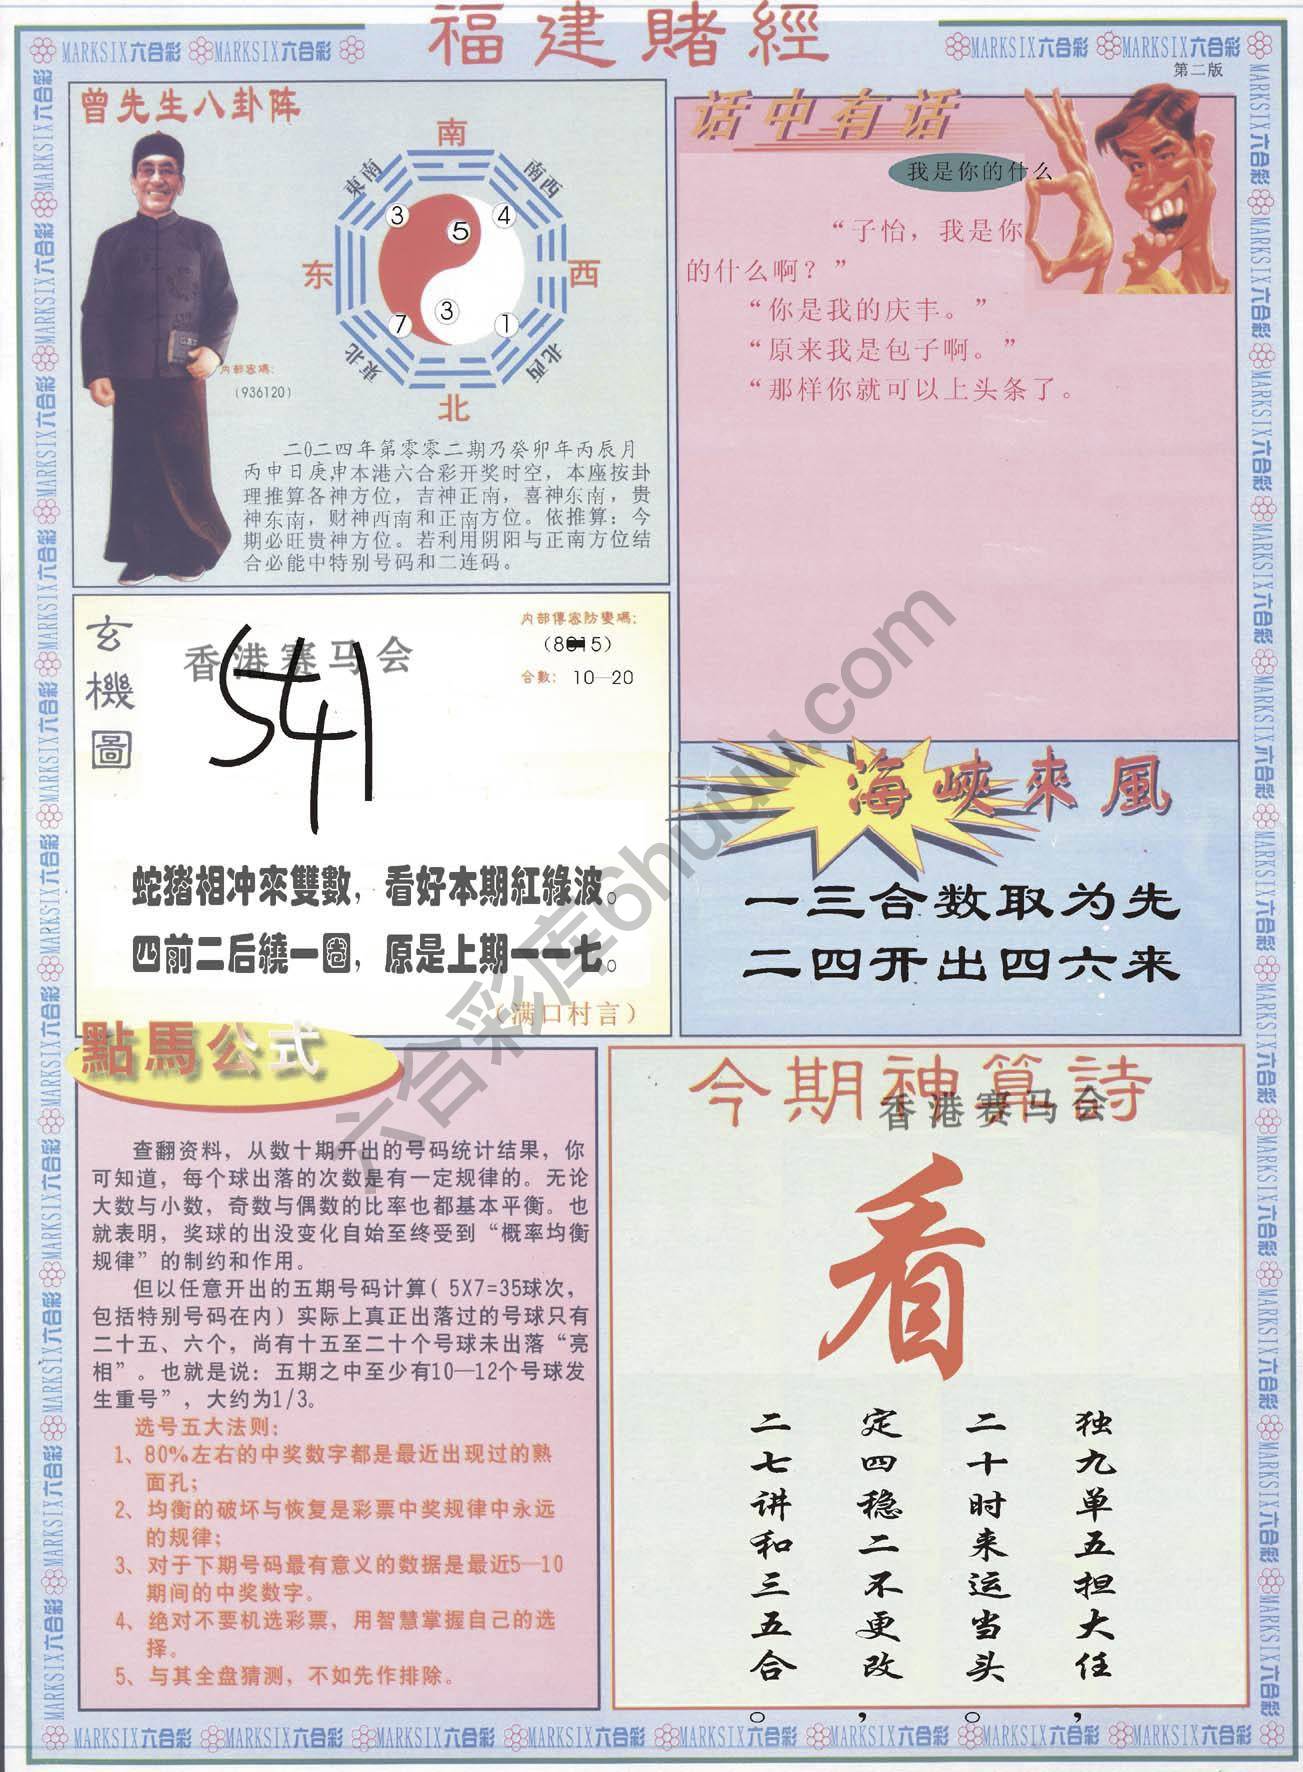 福建賭經
MARKSIX六合彩 MARKSIX六合彩
MARKSIX六合彩 MARKSIX六合彩
第二版
曾先生八卦阵
南
東南
南西
3
5
4
东
西
7
3
1
東北
北西
北
内部密碼：
（936120）
二0二四年第零零二期乃癸卯年丙辰月
丙申日庚申本港六合彩开奖时空，本座按卦
理推算各神方位，吉神正南，喜神东南，贵
神东南，财神西南和正南方位。依推算：今
期必旺贵神方位。若利用阴阳与正南方位结
合必能中特别号码和二连码。
话中有话
我是你的什么
“子怡，我是你
的什么啊？”
“你是我的庆丰。”
“原来我是包子啊。”
“那样你就可以上头条了。
玄機圖
香港赛马会
541
内部傳密防變碼：
合數： 10—20
蛇猪相冲來雙數，看好本期紅綠波。
四前二后繞一圈，原是上期一一七。
（满口村言）
海峽來風
一三合数取为先
二四开出四六来
點馬公式
查翻资料，从数十期开出的号码统计结果，你
可知道，每个球出落的次数是有一定规律的。无论
大数与小数，奇数与偶数的比率也都基本平衡。也
就表明，奖球的出没变化自始至终受到“概率均衡
规律”的制约和作用。
但以任意开出的五期号码计算（5X7=35球次，
包括特别号码在内）实际上真正出落过的号球只有
二十五、六个，尚有十五至二十个号球未出落“亮
相”。也就是说：五期之中至少有10—12个号球发
生重号”，大约为1/3。
选号五大法则：
1、80%左右的中奖数字都是最近出现过的熟
面孔；
2、均衡的破坏与恢复是彩票中奖规律中永远
的规律；
3、对于下期号码最有意义的数据是最近5—10
期间的中奖数字。
4、绝对不要机选彩票，用智慧掌握自己的选
择。
5、与其全盘猜测，不如先作排除。
今期神算詩
香港赛马会
看
独九单五担大任，
二十时来运当头。
定四稳二不更改，
二七讲和三五合。
六合彩库6huuu.com
MARKSIX六合彩 MARKSIX六合彩 MARKSIX六合彩 MARKSIX六合彩 MARKSIX六合彩 MARKSIX六合彩 MARKSIX六合彩 MARKSIX六合彩